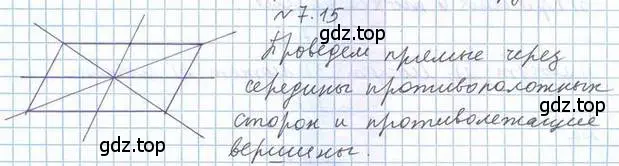 №7.15
gdz.top
Проведем прямые через
середины противоположных
gdz.top
сторон и противолежащие
gdz.top
вершины.